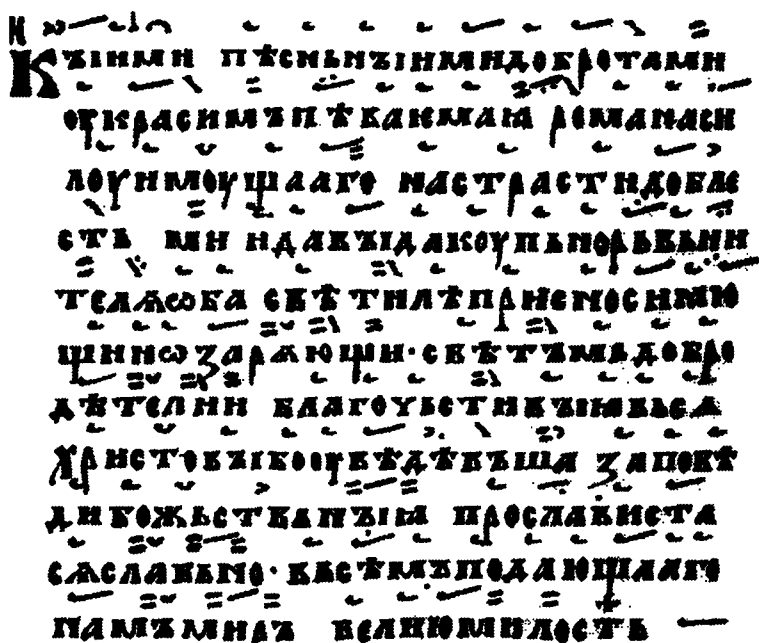 Кꙑими пѣсньнꙑими добротами
оукрасимъ пѣваѥмаꙗ романа си
лоу имоущааго на страсти добле
сть ми и дав꙼ꙑда коупьно
телѧ ѡба свѣтилѣ приснос имю
щи и ѡзарѧющи · свѣтъмь добро
дѣтелии благочьстивꙑꙗ вьсѧ
христовꙑ бо оувѣдѣвъша заповѣ
ди божьствьнꙑꙗ прослависта
сѧ славьно · вьсѣмъ подающааго
намъ миръ велию милость